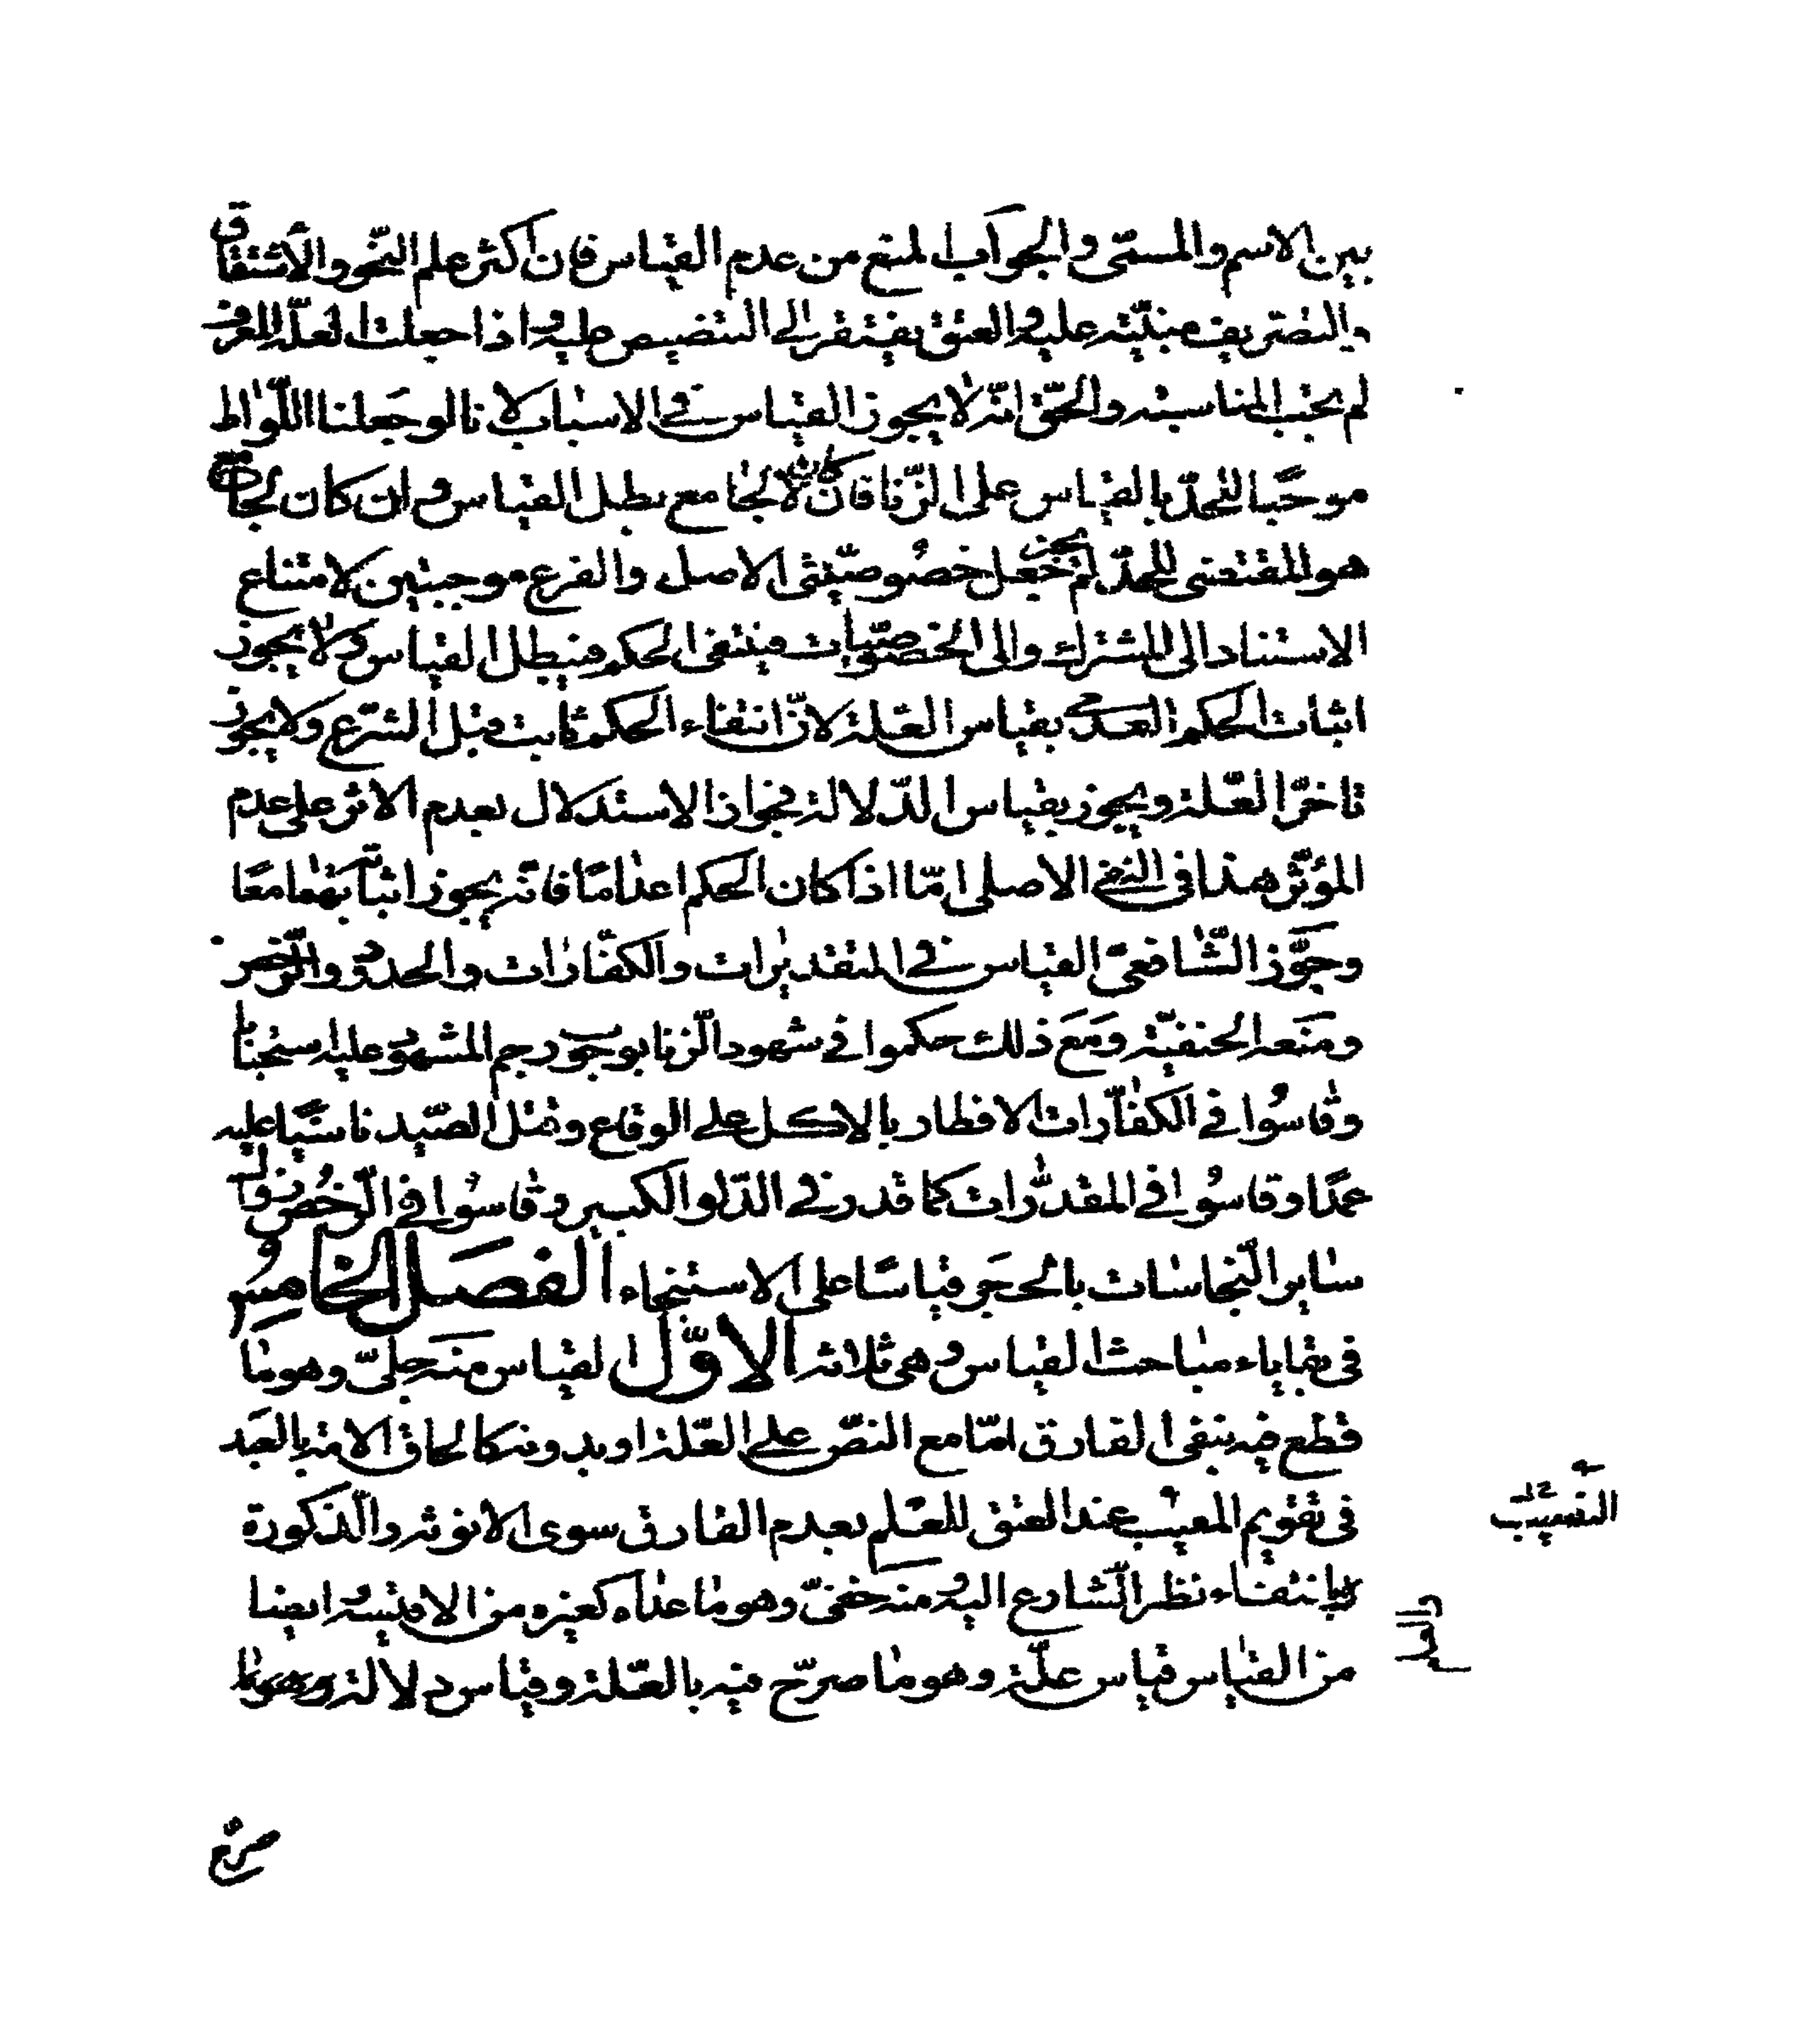 بين الاسم والمسمّى والجواب المنع من عدم القياس فان اكثر علم النّحو والأشتقاق
والتصريف مبنيّة عليه والعتق يفتقر الى التنصيص عليه واذا جعلت لعلّة المعرف
لم يجب المناسبة والحقّ انّه لا يجوز القياس في الاسباب لانا لو جعلنا اللّواط
موجبًا للحدّ بالقياس على الزّنا فان كان لا لجامع بطل القياس وان كان لجامع
هو المقتضى للحدّ لم يجز جعل خصُوصيّتى الاصل والفرع موجبتين لامتناع
الاستناد الى المشترك والى الخصوصيّات فينتفى الحكم فيبطل القياس ولا يجوز
اثبات الحكم العدمي بقياس العلة لانّ انتفاء الحكم ثابت قبل الشرّع ولا يجوز
تاخرّ العّلة ويجوز بقياس الدّلالة لجواز الاستدلال بعدم الاثر على عدم
المؤثّر هذا فى النفي الاصلى امّا اذا كان الحكم اعدامًا فانّه يجوز اثباته بهما معًا
وجوَّز الشّافعىّ القياس في التقديرات والكفّارات والحدود والرّخص
ومنَعه الحنفيّة ومَعَ ذلك حكموا في شهود الزّنا بوجوب رجم المشهود عليه استحبابا
وقاسُوا في الكفاّرات الافطار بالاكل على الوقاع وقتل الصّيد ناسيًا عليه
عمدًا وقاسُوا في المقدّرات كما قدر في الدّلو الكبير وقاسُوا في الرّخُص
ساير النّجاسات بالحجَر قياسًا على الاستنجاء الفصَل الخامسُ
فى بقاياء مباحث القياس وهى ثلاثة الاوّل القياس منه جلىّ وهو ما
قطع فيه بنفى الفارق امّا مع النصّ على العّلة او بدونه كالحاق الامة بالعبَد
فى تقويم المعيب عند العتق للعّلم بعدم الفارق سوى الانوثة والذكورة
بانتفاء نظر الشّارع اليه ومنه خفىّ وهو ما عداه كغيره من الاقيسة ايضا
من القياس قياس علّة وهو ما صرّح فيه بالعّلة وقياس دلالة وهو ما